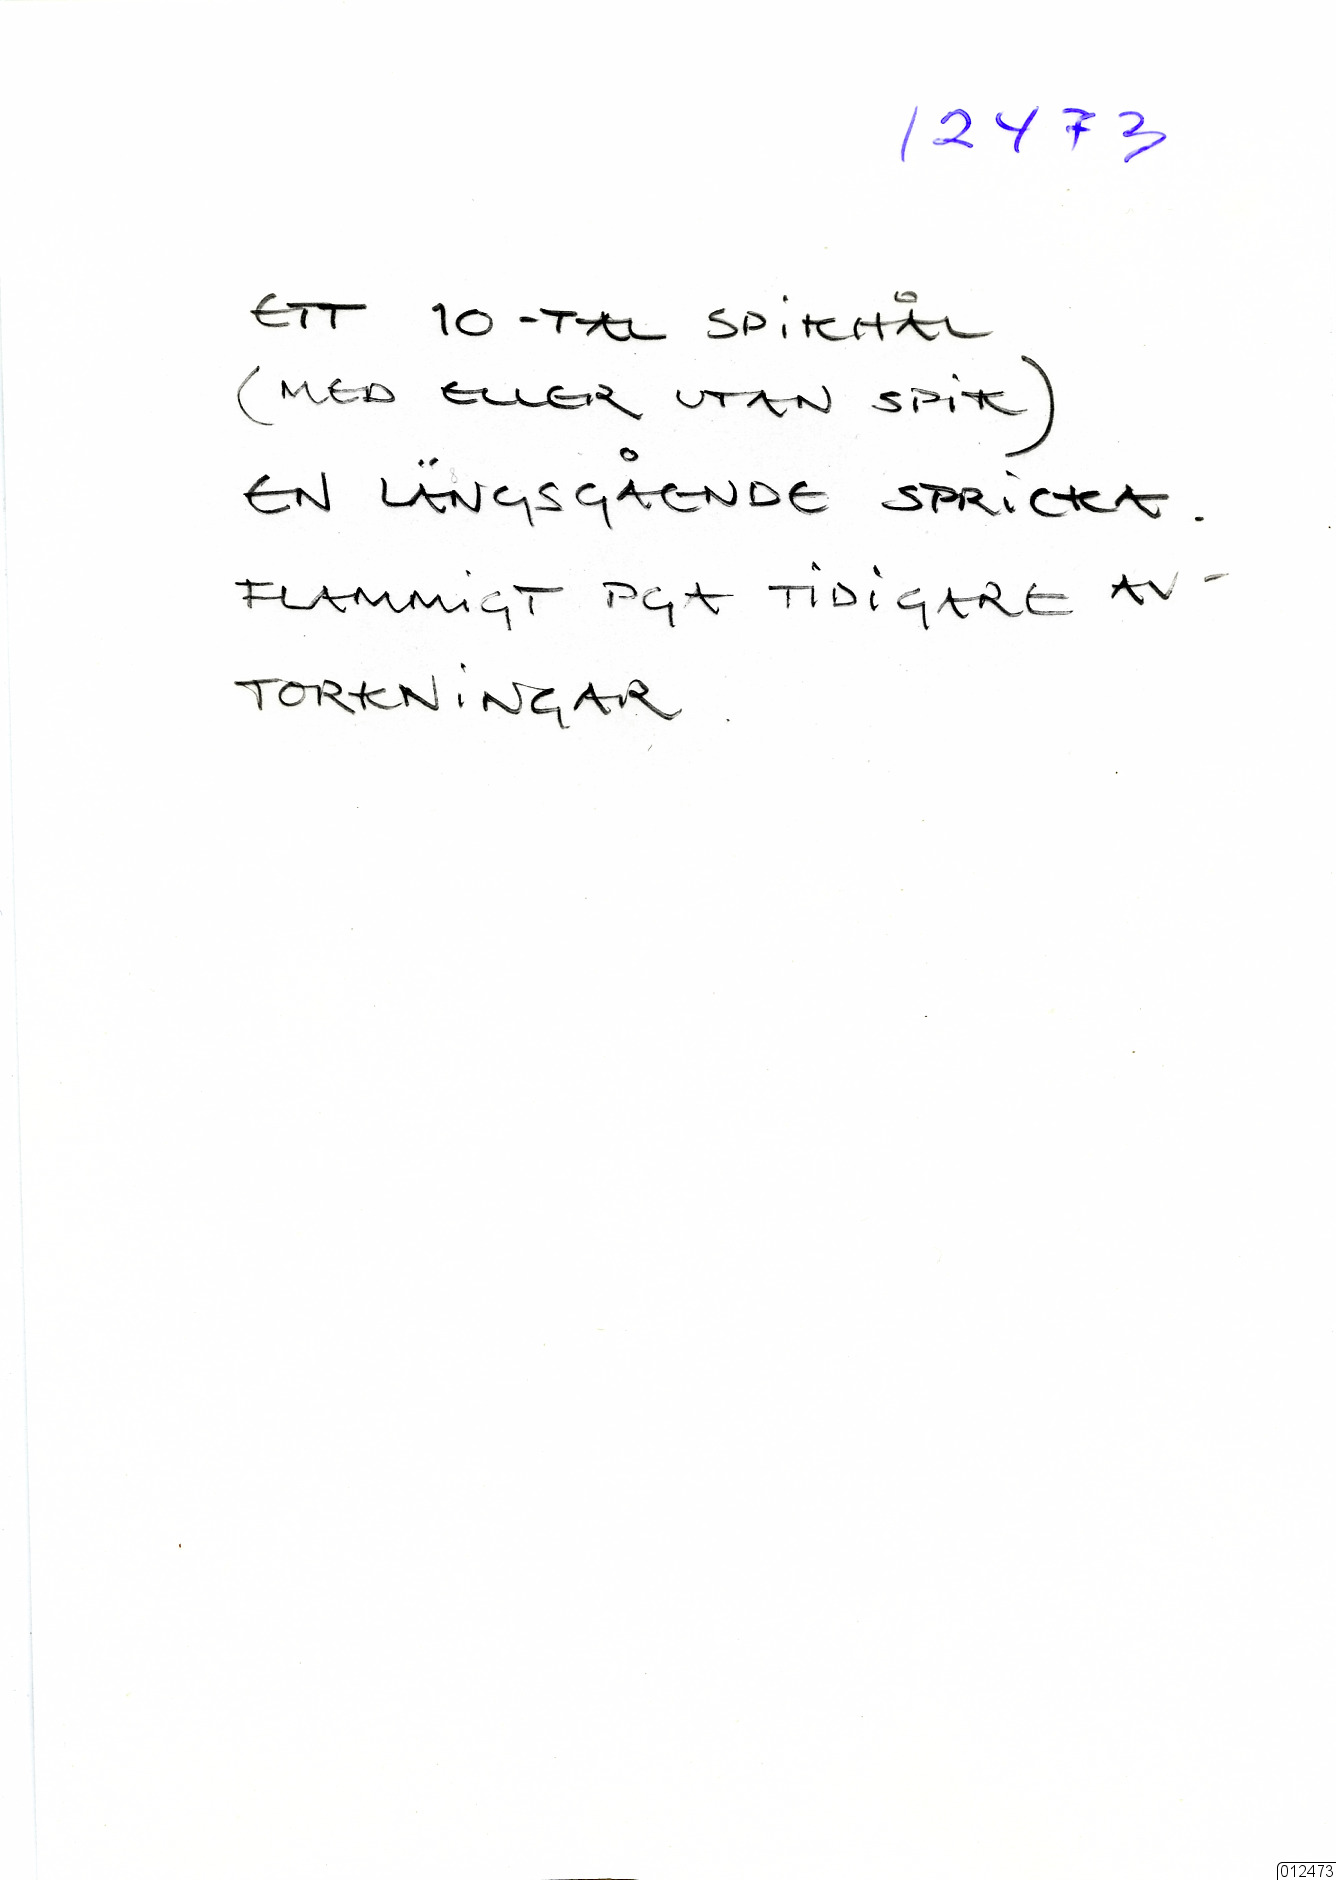 12473
ETT 10-TAL SPIKHÅL
(MED ELLER UTAN SPIK)
EN LÄNGSGÅENDE SPRICKA.
FLAMMIGT PGA TIDIGARE AV-
TORKNINGAR
012473